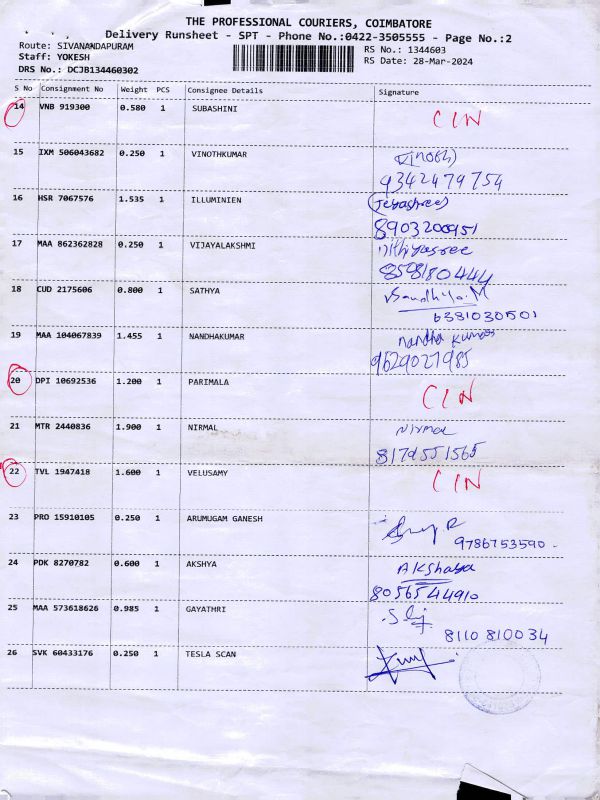 THE PROFESSIONAL COURIERS, COIMBATORE
Delivery Runsheet - SPT - Phone No.:0422-3505555 - Page No.:2
Route: SIVANANDAPURAM
RS No.: 1344603
Staff: YOKESH
RS Date: 28-Mar-2024
DRS No.: DCJB134460302
S No Consignment No Weight PCS Consignee Details Signature
14 VNB 919300 0.580 1 SUBASHINI CIN
15 IXM 506043682 0.250 1 VINOTHKUMAR
9342479754
16 HSR 7067576 1.535 1 ILLUMINIEN (Jeyashree)
8903200951
17 MAA 862362828 0.250 1 VIJAYALAKSHMI
8598180444
18 CUD 2175606 0.800 1 SATHYA Sandhiya.M
6381030501
19 MAA 104067839 1.455 1 NANDHAKUMAR nandha kumar
9629027985
20 DPI 10692536 1.200 1 PARIMALA CIN
21 MTR 2440836 1.900 1 NIRMAL Nirmal
8179551565
22 TVL 1947418 1.600 1 VELUSAMY CIN
23 PRO 15910105 0.250 1 ARUMUGAM GANESH
9786753590
24 PDK 8270782 0.600 1 AKSHYA AKshaya
8056544910
25 MAA 573618626 0.985 1 GAYATHRI
8110810034
26 SVK 60433176 0.250 1 TESLA SCAN